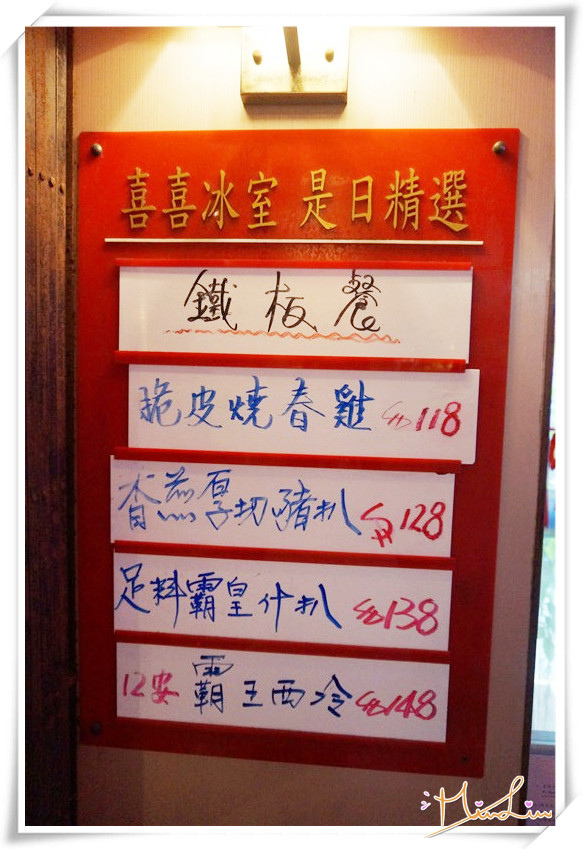 喜喜冰室 是日精選
鐵板餐
脆皮燒春雞 $118
香燕厚切豬扒 $128
足料霸皇什扒 $138
12安 霸王西冷 $148
MiuLiu